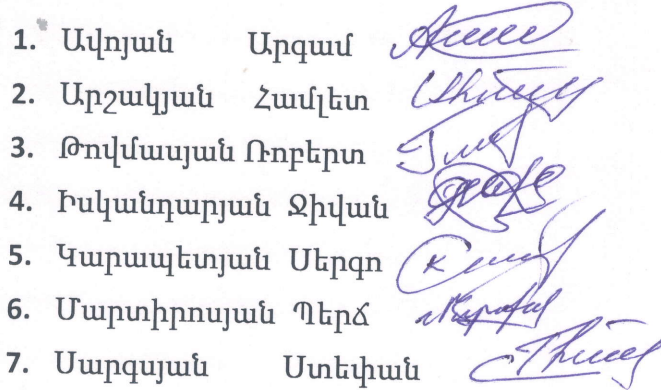 1. Ավոյան Արգամ
2. Արշակյան Համլետ
3. Թովմասյան Ռոբերտ
4. Իսկանդարյան Ջիվան
5. Կարապետյան Սերգո
6. Մարտիրոսյան Պերճ
7. Սարգսյան Ստեփան